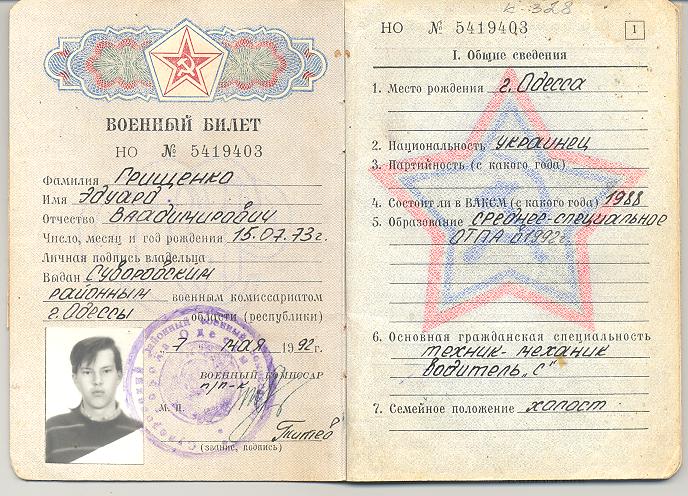 ВОЕННЫЙ БИЛЕТ
НО № 5419403
Фамилия Грищенко
Имя Эдуард
Отчество Владимирович
Число, месяц и год рождения 15.07.73г.
Личная подпись владельца
Выдан Суворовским
районным военным комиссариатом
г. Одессы области (республики)
7 мая 1992г.
ВОЕННЫЙ КОМИССАР
п/п-к
М. П.
(звание, подпись)
К-328
НО № 5419403
1
I. Общие сведения
1. Место рождения г. Одесса
2. Национальность украинец
3. Партийность (с какого года)
4. Состоит ли в ВЛКСМ (с какого года) 1988
5. Образование среднее-специальное
ОТПА в 1992г.
6. Основная гражданская специальность
техник-механик
водитель „С"
7. Семейное положение холост